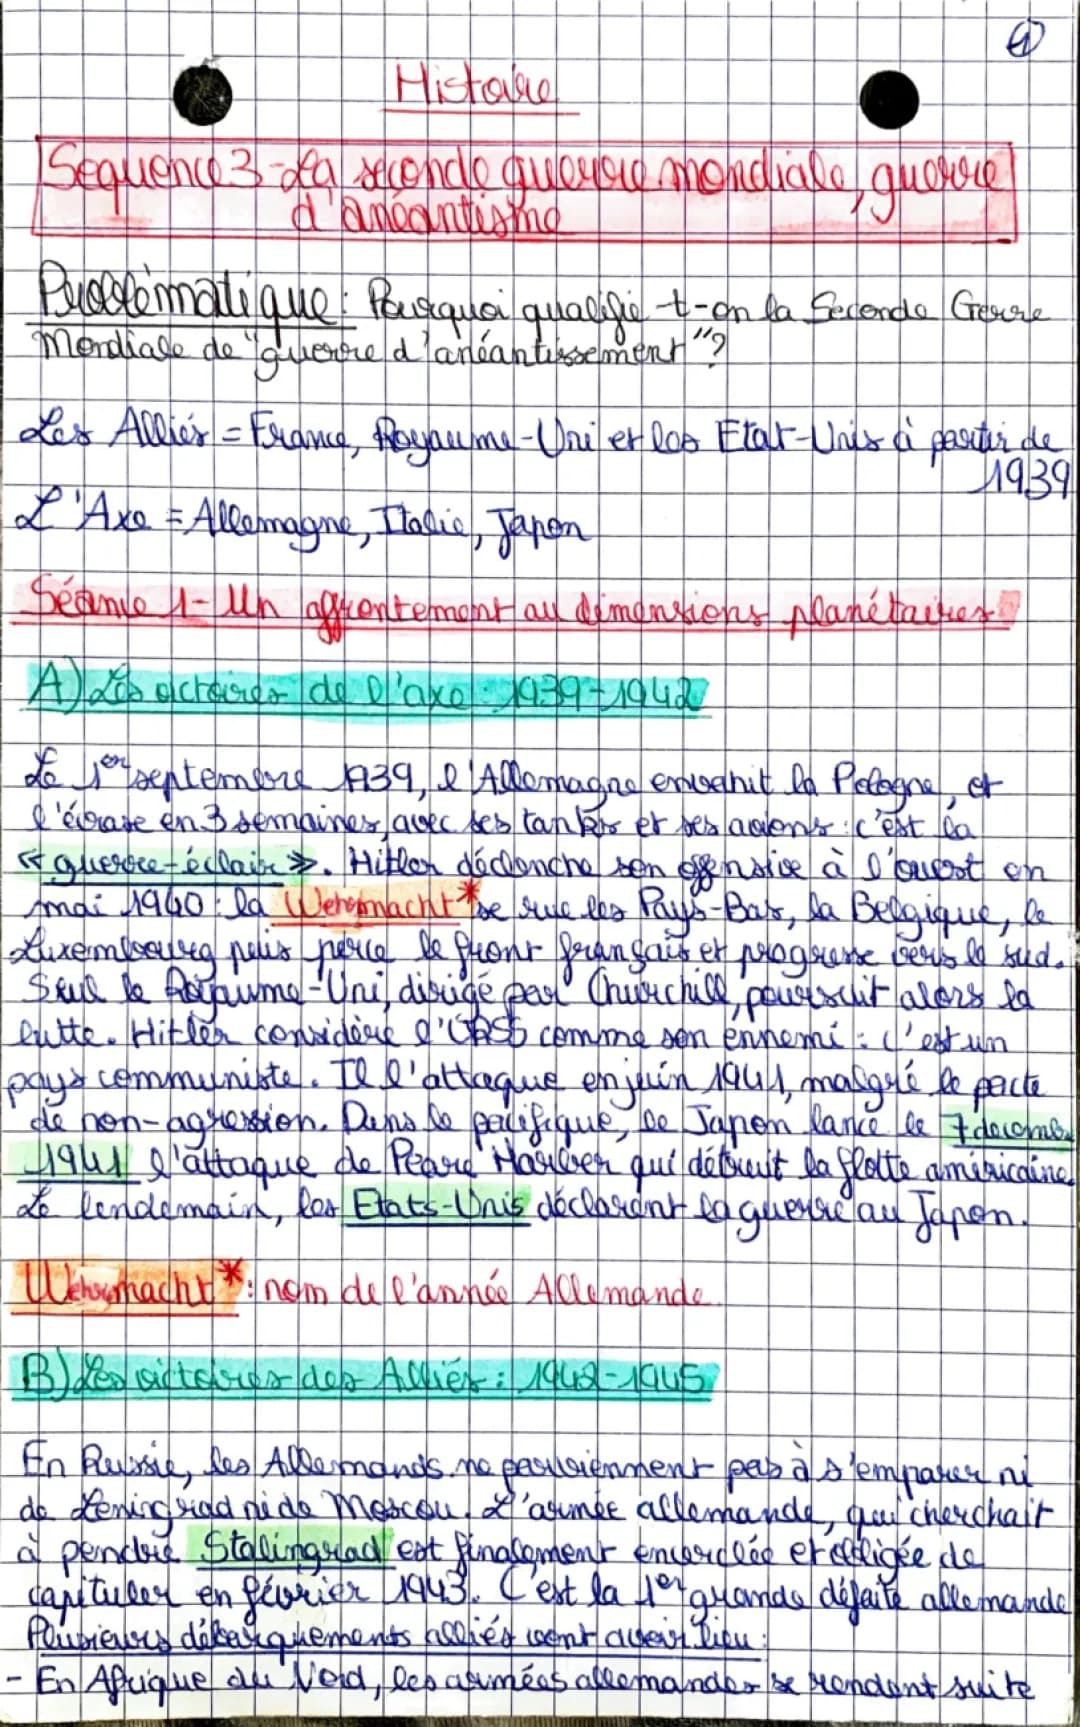 1
Histoire
Sequence 3 - La seconde guerre mondiale, guerre
d'anéantisme
Problématique : Pourquoi qualifie-t-on la Seconde Gerre
Mondiale de "guerre d'anéantissement"?
Les Alliés = France, Royaume-Uni et les Etat-Unis à partir de
1939
L'Axe = Allemagne, Italie, Japon
Séance 1 - Un affrontement au dimensions planétaires
A) Les victoires de l'axe : 1939-1942
Le 1er septembre 1939, l'Allemagne envahit la Pologne, et
l'écrase en 3 semaines, avec ses tanks et ses avions : c'est la
« guerre-éclair ». Hitler déclenche son offensive à l'ouest en
mai 1940 : la Wehrmacht* se rue les Pays-Bas, la Belgique, le
Luxembourg puis perce le front français et progresse vers le sud.
Seul le Royaume-Uni, dirigé par Churchill, poursuit alors la
lutte. Hitler considère l'URSS comme son ennemi : c'est un
pays communiste. Il l'attaque en juin 1941, malgré le pacte
de non-agression. Dans le pacifique, le Japon lance le 7 décembre
1941 l'attaque de Pearl Harbor qui détruit la flotte américaine.
Le lendemain, les Etats-Unis déclarent la guerre au Japon.
Wehrmacht* : nom de l'année Allemande
B) Les victoires des Alliés : 1942-1945
En Russie, les Allemands ne parviennent pas à s'emparer ni
de Leningrad ni de Moscou. L'armée allemande, qui cherchait
à pendre Stalingrad est finalement encerclée et obligée de
capituler en février 1943. C'est la 1er grande défaite allemande
Plusieurs débarquements alliés vont avoir lieu :
- En Afrique du Nord, les armées allemandes se rendent suite